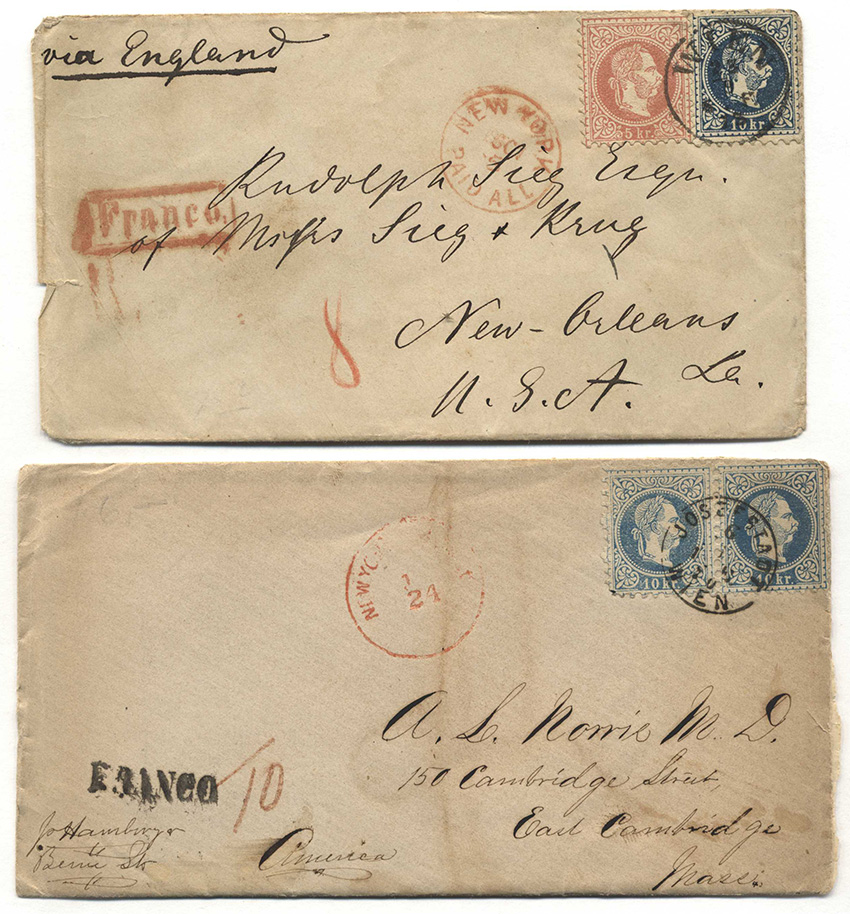 via England
5 kr.
10 kr.
WIEN
NEW YORK
PAID ALL
Franco.
Rudolph Sieg Esqr.
of Messrs Sieg & Krug
8
New-Orleans
La.
U.S.A.
10 kr.
10 kr.
JOSEFSTADT
WIEN
NEW YO
24
A. L. Norris M. D.
150 Cambridge Street,
East Cambridge
Mass.
FRANCO
10
America